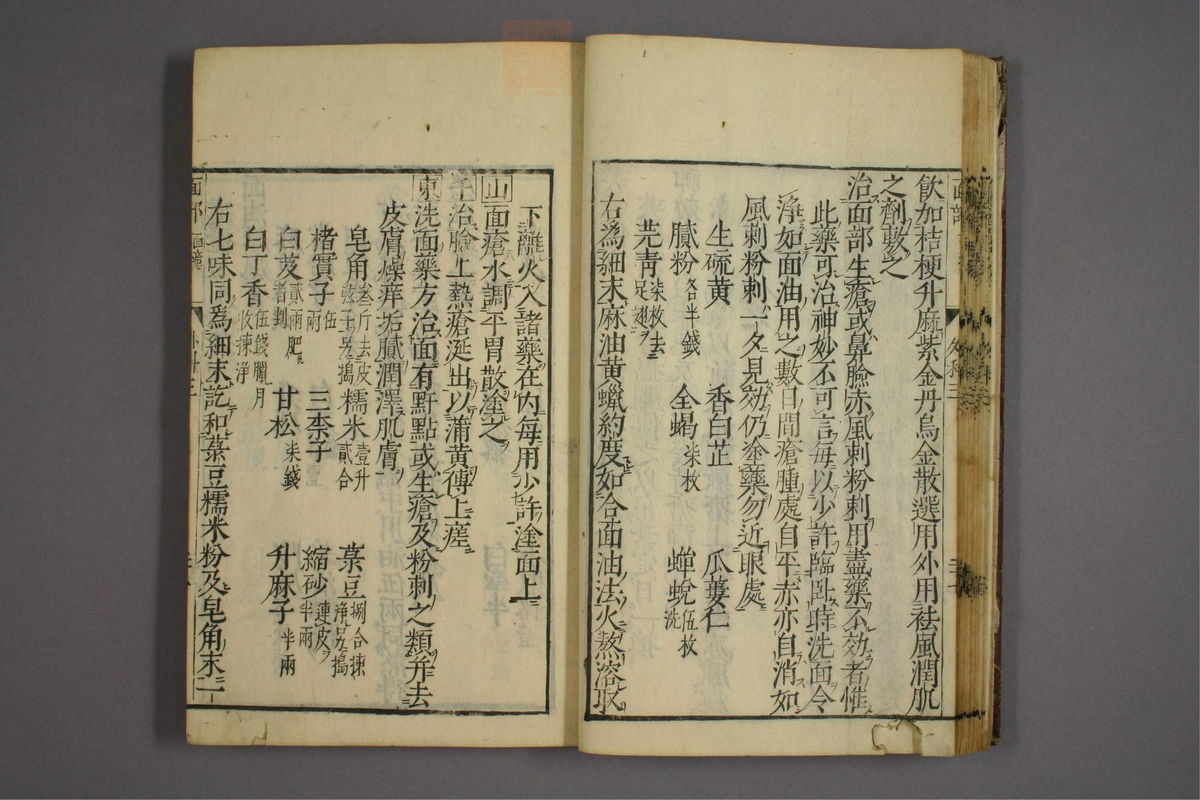 飲如桔梗升麻紫金丹烏金散選用外用祛風潤肌
之劑敷之
治面部生瘡或鼻臉赤風刺粉刺用盡藥不効者惟
此藥可治神妙不可言每以少許臨臥時洗面令
淨如面油用之數日間瘡腫處自平赤亦自消如
風刺粉刺一夕見効仍塗藥勿近眼處
生硫黄 香白芷 瓜蔞仁
膩粉各半錢 全蝎柒枚 蟬蛻伍枚洗
芫青柒枚去足翅
右為細末麻油黄蠟約度如合面油法火熬溶取
下離火入諸藥在内每用少許塗面上
山面瘡水調平胃散塗之
治臉上熱瘡涎出以蒲黄傅上瘥
東洗面藥方治面有䵟點或生瘡及粉刺之類并去
皮膚燥痒垢膩潤澤肌膚
皂角叁斤去皮弦子另搗 糯米壹升貳合 菉豆捌合揀淨另搗
楮實子伍兩 三柰子 縮砂連皮半兩
白芨貳兩肥者剉 甘松柒錢 升麻子半兩
白丁香伍錢臘月收揀淨
右七味同為細末訖和菉豆糯米粉及皂角末一
面部